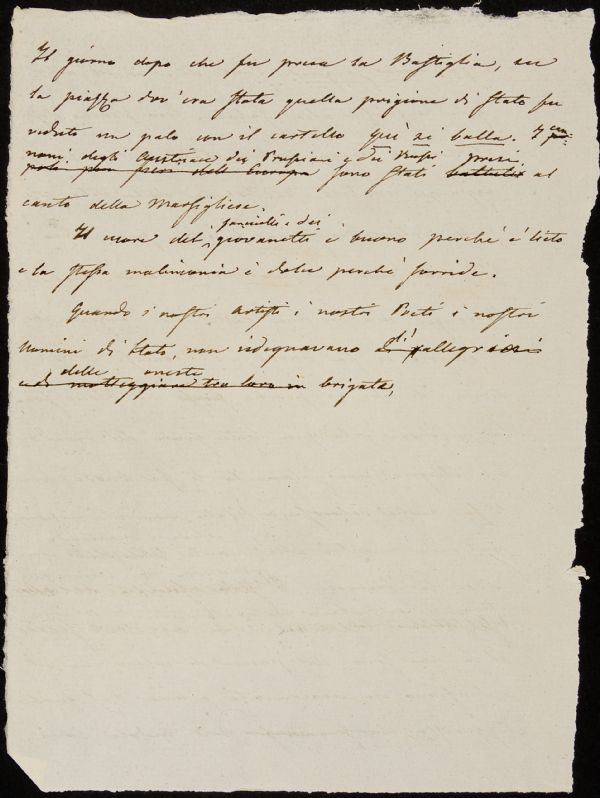 Il giorno dopo che fu presa la Bastiglia, su
la piazza dov'era stata quella prigione di Stato fu
veduto un palo con il cartello quì si balla. I can-
noni degli Austriaci dei Prussiani e dei Russi presi
più fieri dell'Europa sono stati battuti al
canto della Marsigliese.
fanciulli e dei
Il cuore dei giovanetti è buono perché è lieto
e la stessa malinconia è dolce perché sorride.
Quando i nostri Artisti i nostri Poeti i nostri
Uomini di Stato, non isdegnavano di rallegrarsi
delle oneste
e di motteggiare tra loro in brigata,